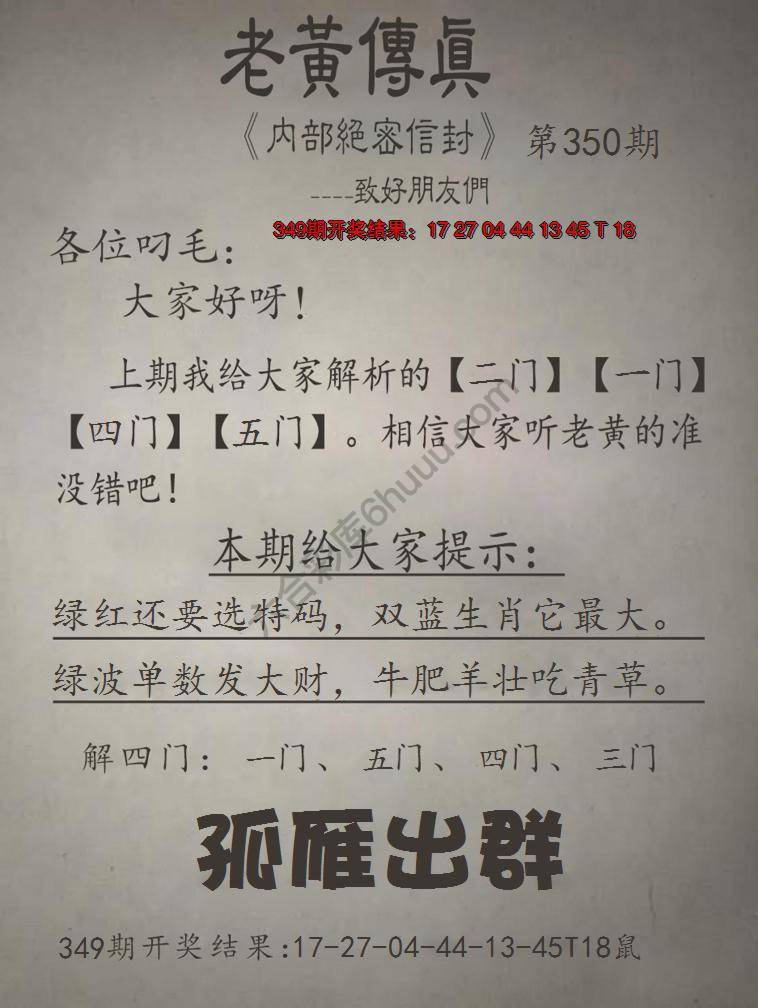 老黃傳眞
《内部絕密信封》 第350期
----致好朋友們
349期开奖结果：17 27 04 44 13 45 T 18
各位叼毛：
大家好呀！
上期我给大家解析的【二门】【一门】
【四门】【五门】。相信大家听老黄的准
没错吧！
六合彩库6huuu.com
本期给大家提示：
绿红还要选特码，双蓝生肖它最大。
绿波单数发大财，牛肥羊壮吃青草。
解四门：一门、五门、四门、三门
孤雁出群
349期开奖结果:17-27-04-44-13-45T18鼠